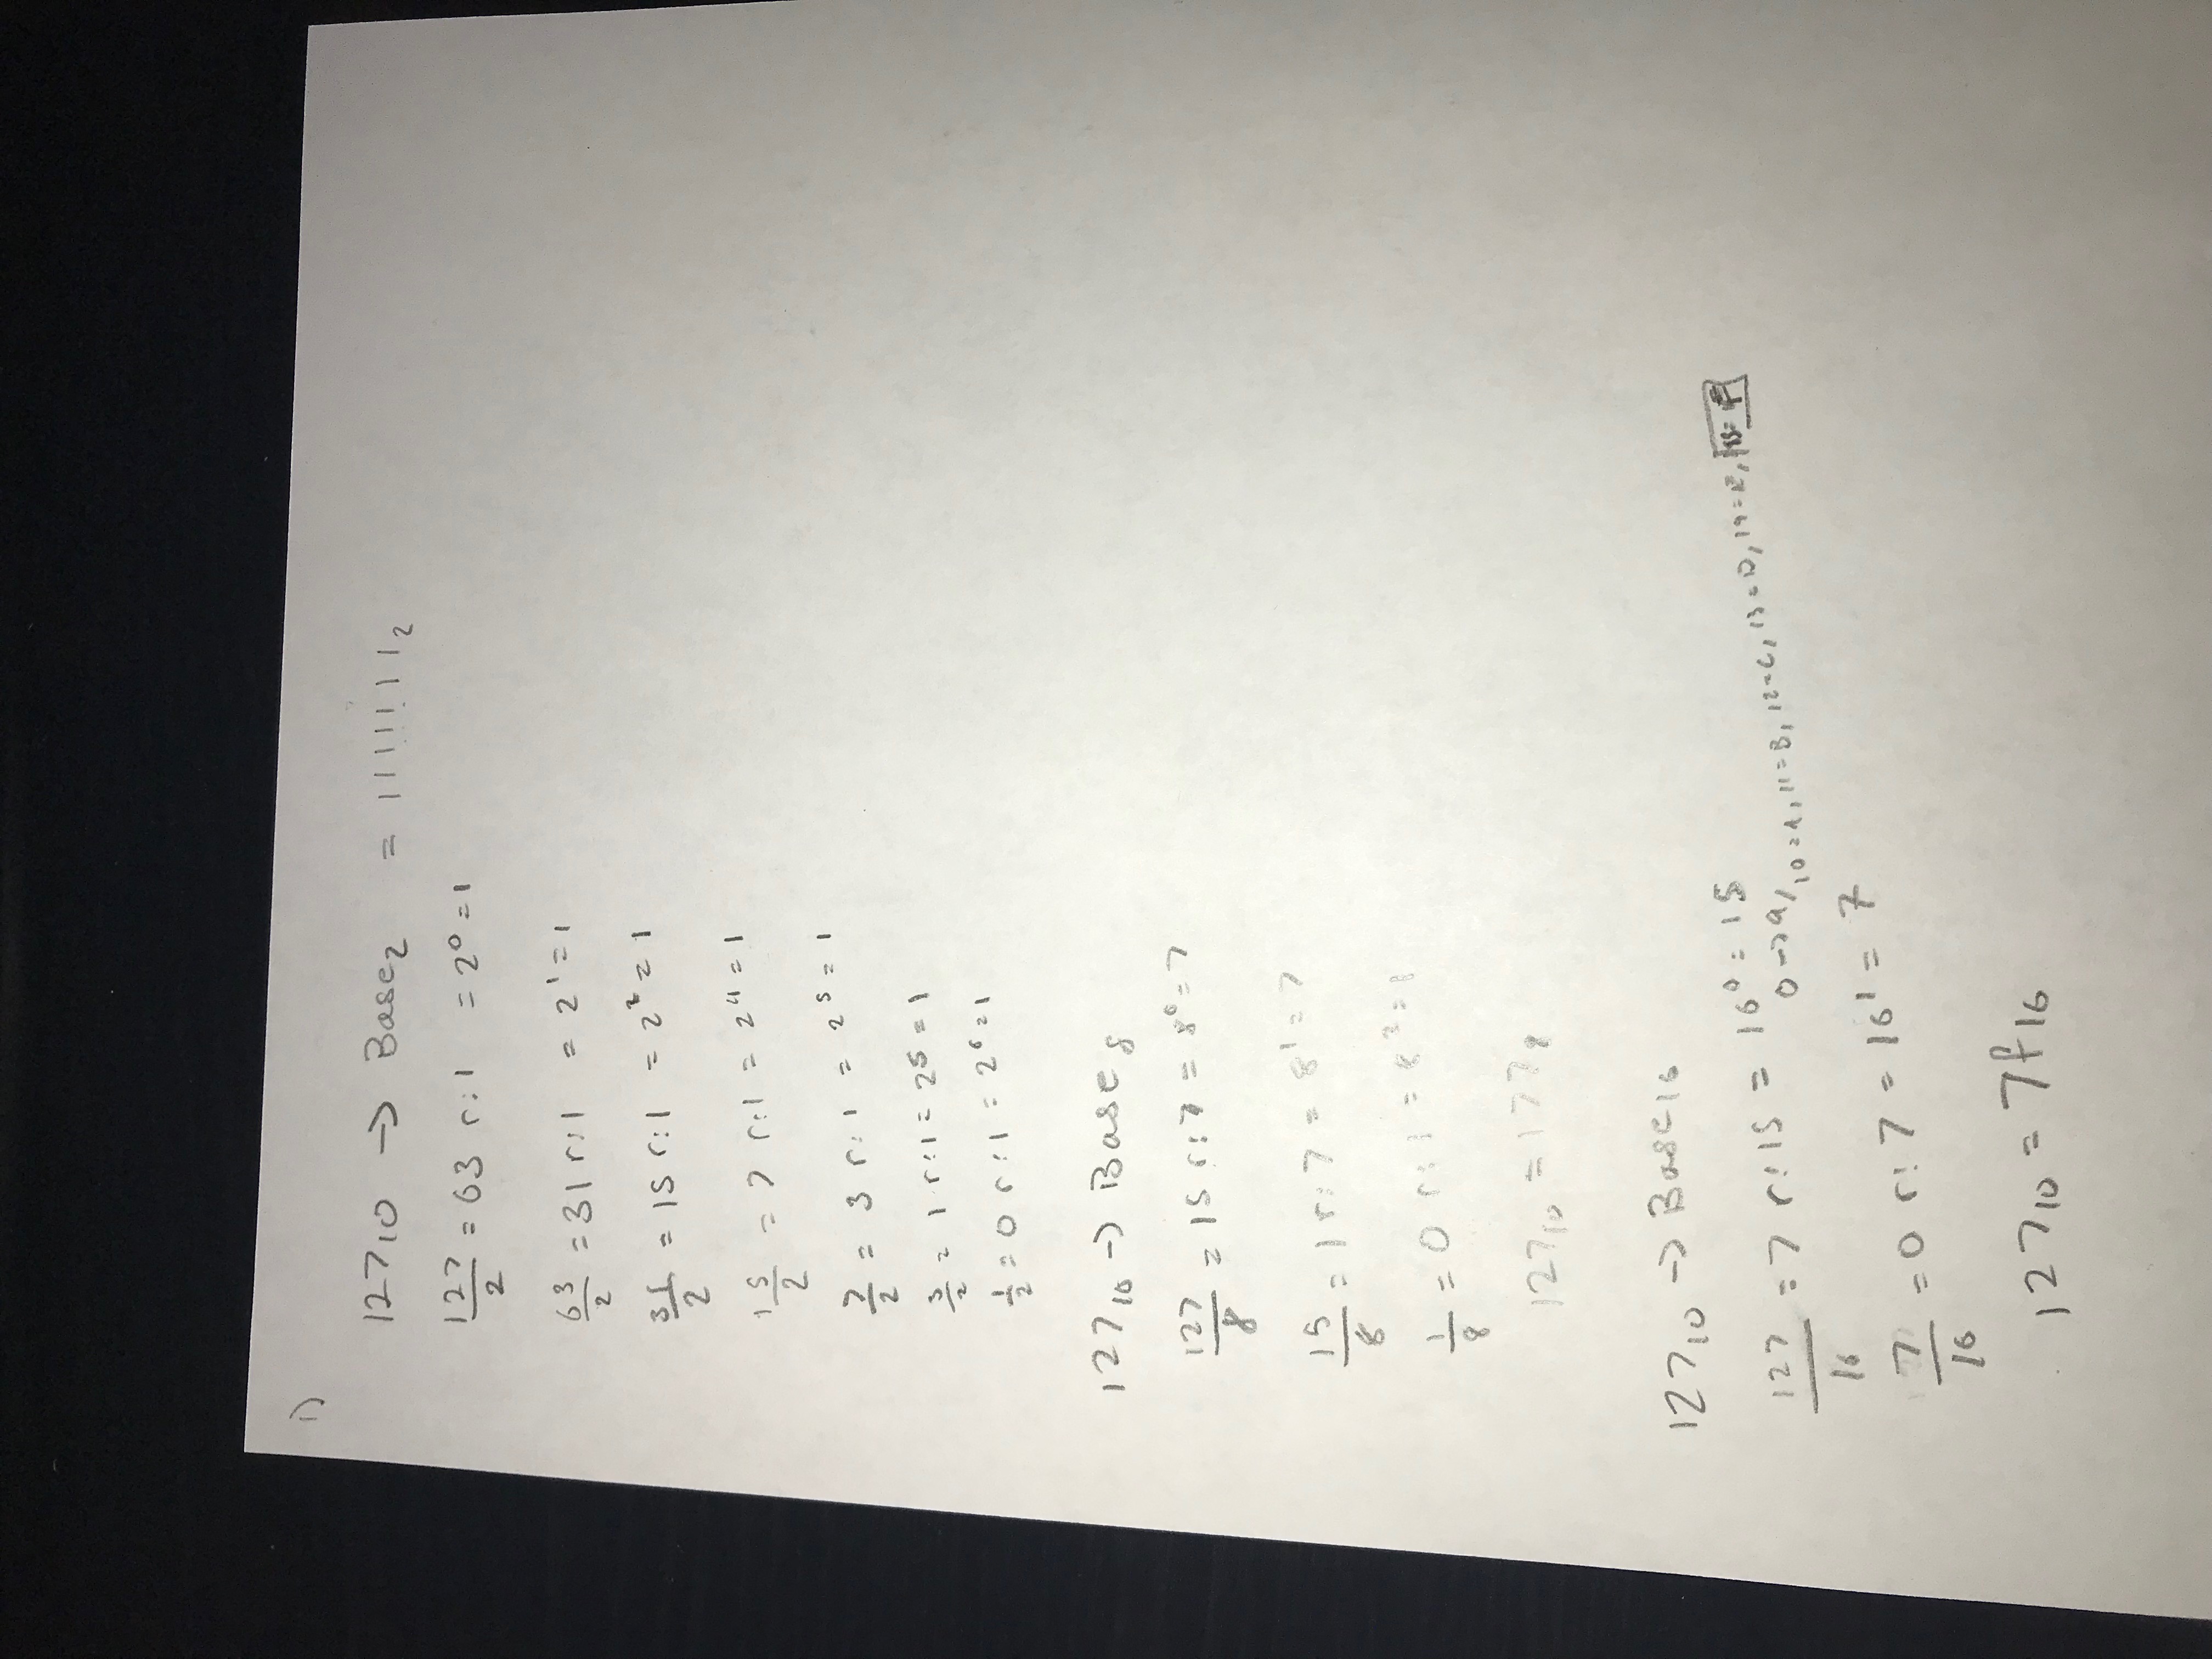 1)
127₁₀ → Base₂ = 1111111₂
127/2 = 63 r:1 = 2⁰ = 1
63/2 = 31 r:1 = 2¹ = 1
31/2 = 15 r:1 = 2² = 1
15/2 = 7 r:1 = 2⁴ = 1
7/2 = 3 r:1 = 2⁵ = 1
3/2 = 1 r:1 = 2⁵ = 1
1/2 = 0 r:1 = 2⁶ = 1
127₁₀ → Base₈
127/8 = 15 r:7 = 8⁰ = 7
15/8 = 1 r:7 = 8¹ = 7
1/8 = 0 r:1 = 8² = 1
127₁₀ = 177₈
127₁₀ → Base₁₆
127/16 = 7 r:15 = 16⁰ = 15
0→9, 10=A, 11=B, 12=C, 13=D, 14=E, 15=F
7/16 = 0 r:7 = 16¹ = 7
127₁₀ = 7f₁₆